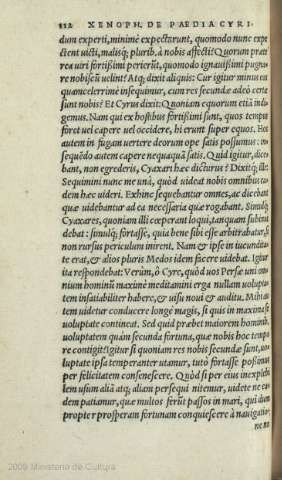 112 XENOPH. DE PAEDIA CYRI.
dum experti, minimè expectarunt, quomodo nunc expe
ctent uicti, malisq́; plurib. à nobis affecti? Quorum præte
rea uiri fortißimi perierũt, quomodo ignauißimi pugna
re nobiscũ uelint? Atq; dixit aliquis: Cur igitur minus eos
quàm celerrimè insequimur, cum res secundæ adeò certæ
sunt nobis? Et Cyrus dixit: Quoniam equorum etiã indi
gemus. Nam qui ex hostibus fortißimi sunt, quos tempus
foret uel capere uel occidere, hi erunt super equos. Hos
autem in fugam uertere deorum ope satis possumus: in
sequẽdo autem capere nequaquã satis. Quid igitur, dice
bant, non egrederis, Cyaxari hæc dicturus? Dixitq́; ille:
Sequimini nunc me unà, quòd uideat nobis omnibus ea
dem hæc uideri. Exhinc sequebantur omnes, ac dicebant
quæ uidebantur ad ea necessaria quæ rogabant. Simulq́;
Cyaxares, quoniam illi cœperant loqui, tanquam subinui
debat: simulq́; fortasse, quia bene sibi esse arbitrabatur, si
non rursus periculum inirent. Nam & ipse in iucundita
te erat, & alios pluris Medos idem facere uidebat. Igitur
ita respondebat: Verùm, ò Cyre, quòd uos Persæ uni om
nium hominũ maximè meditamini erga nullam uolupta
tem insatiabiliter habere, & uisu noui & auditu. Mihi au
tem uidetur conducere longè magis, si quis in maxima se
uoluptate contineat. Sed quid præbet maiorem hominib.
uoluptatem quàm secunda fortuna, quæ nobis hoc tempo
re contigit? Igitur si quoniam res nobis secundæ sunt, uo
luptate ipsa temperanter utamur, tutò fortasse possemus
per felicitatem consenescere. Quòd si per eius inexplebi
lem usum aliã atq; aliam persequi nitemur, uidete ne ea
dem patiamur, quæ multos ferũt passos in mari, qui dum
propter prosperam fortunam conquiescere à nauigatio
2009 Ministerio de Cultura